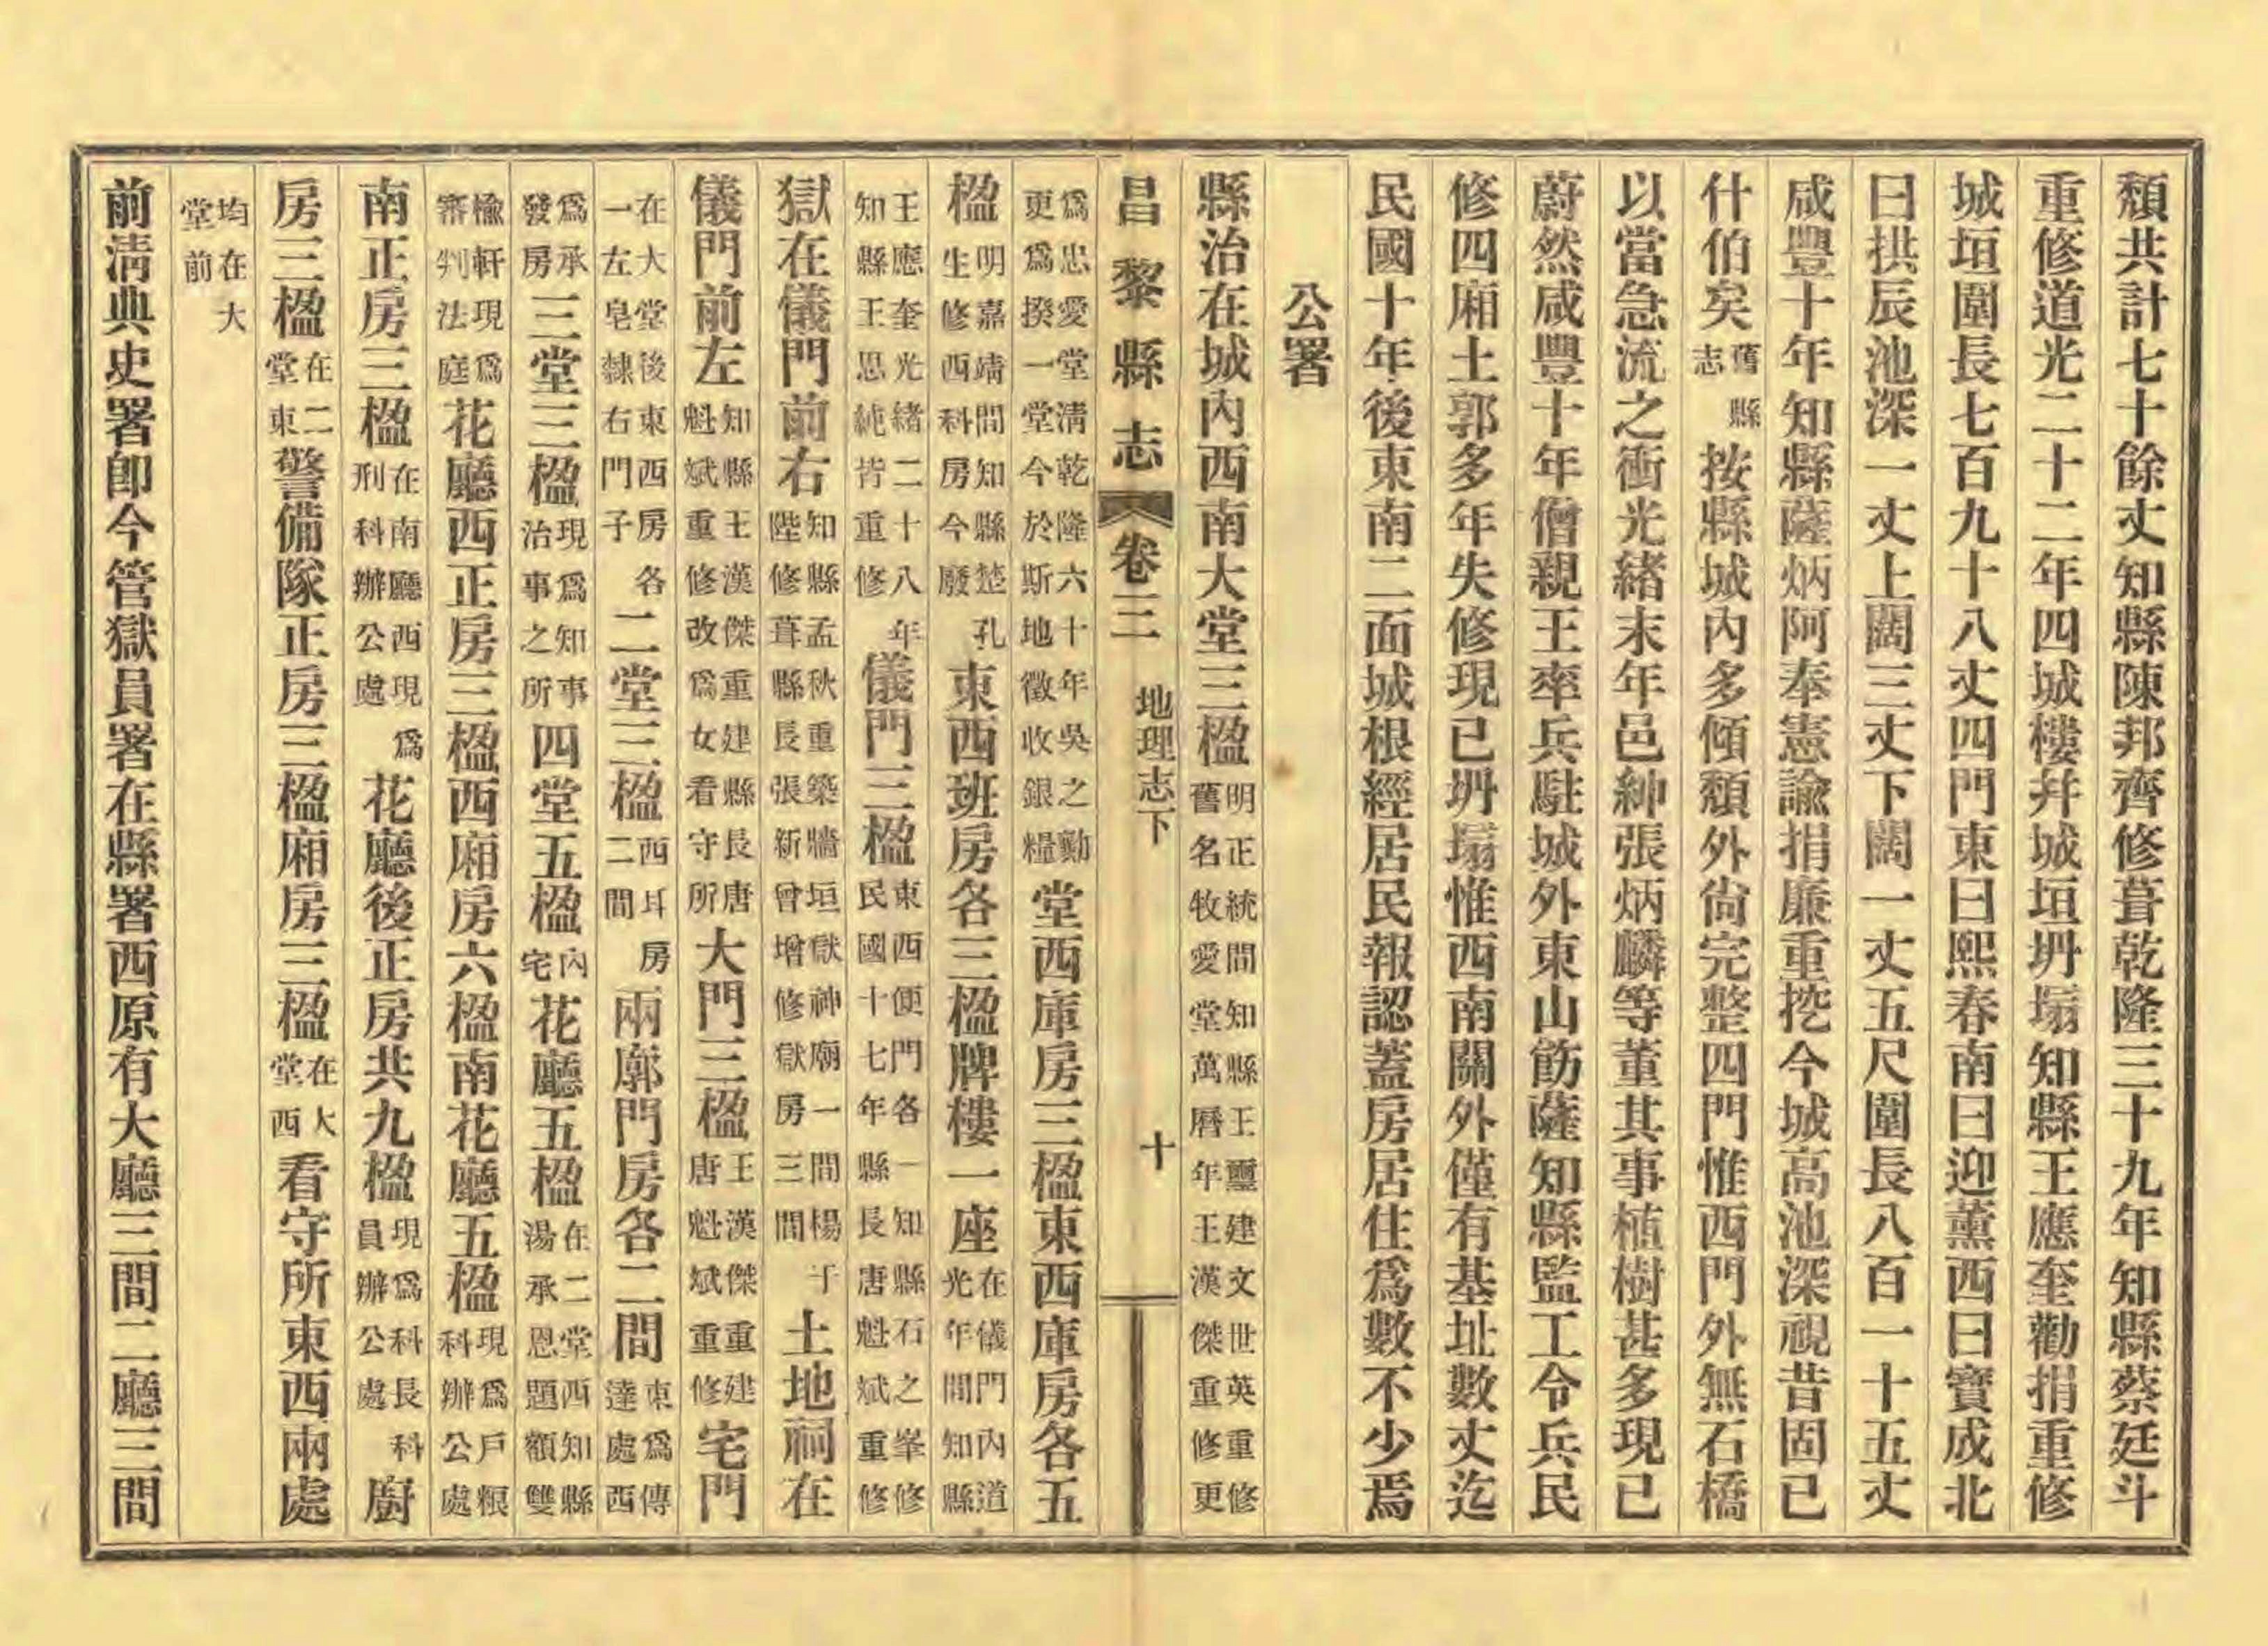 頹共計七十餘丈知縣陳邦齊修葺乾隆三十九年知縣蔡廷斗
重修道光二十二年四城樓幷城垣坍塌知縣王應奎勸捐重修
城垣圍長七百九十八丈四門東曰熙春南曰迎薰西曰寶成北
曰拱辰池深一丈上闊三丈下闊一丈五尺圍長八百一十五丈
咸豐十年知縣薩炳阿奉憲諭捐廉重挖今城高池深視昔固已
什伯矣舊縣志按縣城內多傾頹外尙完整四門惟西門外無石橋
以當急流之衝光緒末年邑紳張炳麟等董其事植樹甚多現已
蔚然咸豐十年僧親王率兵駐城外東山飭薩知縣監工令兵民
修四廂土郭多年失修現已坍塌惟西南關外僅有基址數丈迄
民國十年後東南二面城根經居民報認蓋房居住爲數不少焉
公署
縣治在城內西南大堂三楹明正統間知縣王璽建文世英重修舊名牧愛堂萬曆年王漢傑重修更
昌黎縣志 卷三 地理志下 十
爲忠愛堂淸乾隆六十年吳之勷更爲揆一堂今於斯地徵收銀糧堂西庫房三楹東西庫房各五
楹明嘉靖間知縣楚孔生修西科房今廢東西班房各三楹牌樓一座在儀門內道光年間知縣
王應奎光緒二十八年知縣王思純皆重修儀門三楹東西便門各一知縣石之峯修民國十七年縣長唐魁斌重修
獄在儀門前右知縣孟秋重築牆垣獄神廟一間楊于陛修葺縣長張新曾增修獄房三間土地祠在
儀門前左知縣王漢傑重建縣長唐魁斌重修改爲女看守所大門三楹王漢傑重建唐魁斌重修宅門
在大堂後東西房各一左皂隸右門子二堂三楹西耳房二間兩廓門房各二間東爲傳達處西
爲承發房三堂三楹現爲知事治事之所四堂五楹內宅花廳五楹在二堂西知縣湯承恩題額雙
楡軒現爲審判法庭花廳西正房三楹西廂房六楹南花廳五楹現爲戶粮科辦公處
南正房三楹在南廳西現爲刑科辦公處花廳後正房共九楹現爲科長科員辦公處廚
房三楹在二堂東警備隊正房三楹廂房三楹在大堂西看守所東西兩處
均在大堂前
前淸典史署卽今管獄員署在縣署西原有大廳三間二廳三間